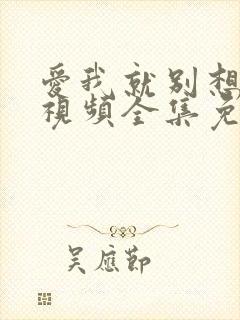 愛我就別想
視頻全集免
吴應節